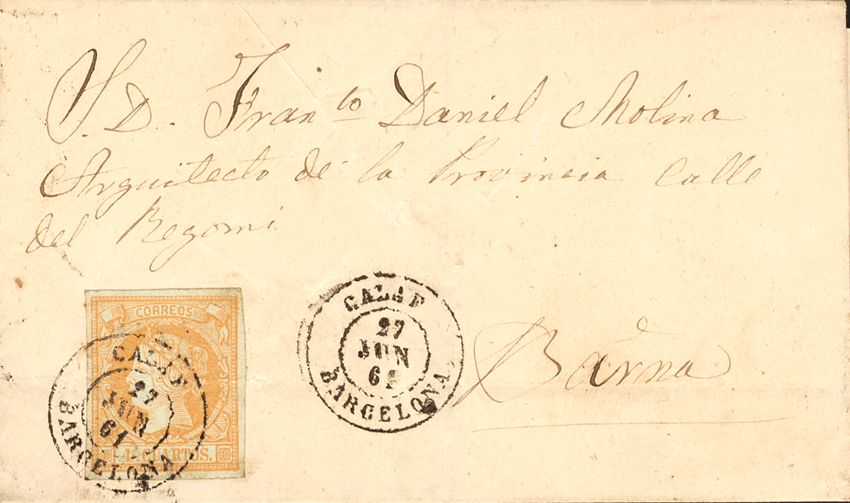 S. D. Fran.co Daniel Molina
Arquitecto de la Provincia Calle
del Regomi
CORREOS
4 CUARTOS.
CALAF
27
JUN
61
BARCELONA
CALAF
27
JUN
61
BARCELONA
Barna